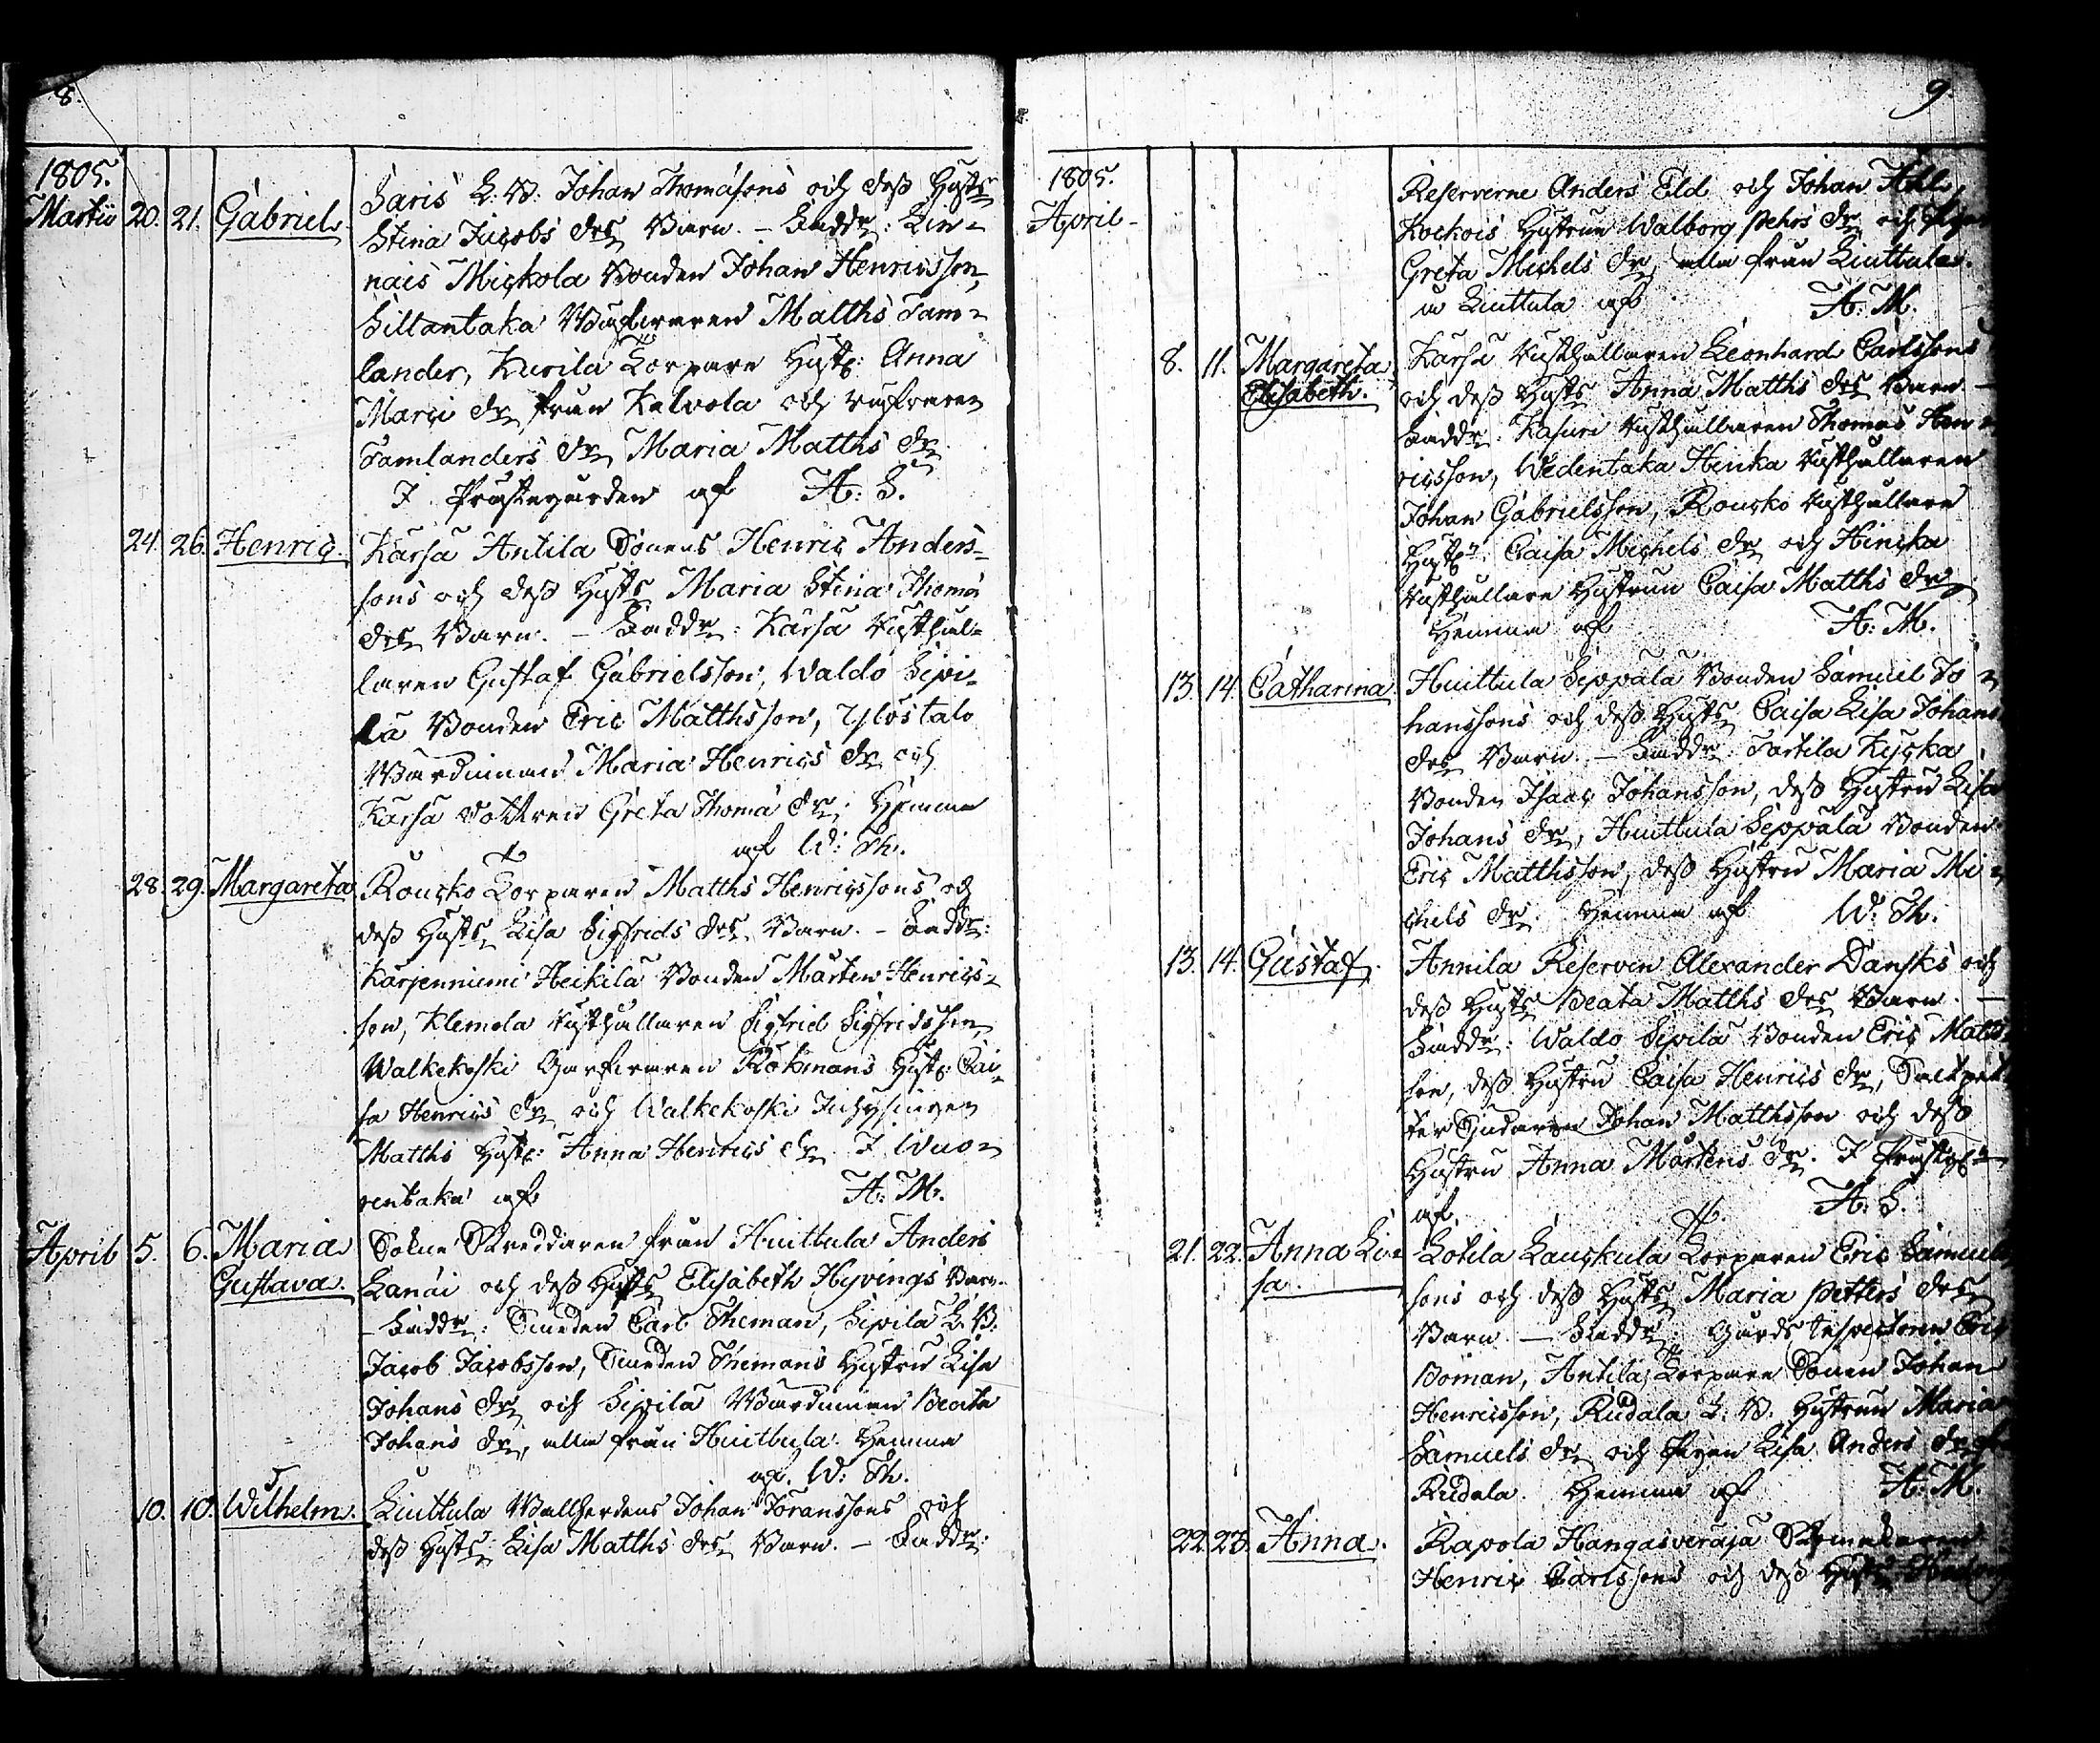 8.
1805.
Martii 20. 21. Gabriel. Saris L: B: Johan Thomasons och dess Hust:s
Stina Jacobs d:rs Barn. – Faddr: Lin-
nais Mickola Bonden Johan Henricsson,
Siltantaka Masturen Matths Tam-
lander, Kurila Torpare Hust: Anna
Marci d:r från Kalvola och
Tamlanders d:r Maria Matths d:r
I Prästegården af A: S.
24. 26. Henric. Karsa Antila Sonens Henric Anders-
sons och dess Hust:s Maria Stina Thomæ
d:rs Barn. – Faddr: Karsa Rusthål-
laren Gustaf Gabrielsson, Waldo Sipi-
lä Bonden Eric Matthsson, Ylöstalo
Wärdinnan Maria Henrics d:r och
Karsa Dottren Greta Thomæ d:r. Hemma
af W: Th.
28. 29. Margareta Roucko Torparen Matths Henricssons och
dess Hust:s Lisa Sigfrids d:rs Barn. – Faddr:
Karjenniemi Heikilä Bonden Mårten Henrics-
son, Klemola Rusthållaren Sigfrid Sigfridsson,
Walkekoski Garfvaren Rökmans Hust: Cai-
sa Henrics d:r och Walkekoski Inhysingen
Matths Hust: Anna Henrics d:r. I Wuo-
rentaka af A: M.
April 5. 6. Maria Sokne Skreddaren från Huittula Anders
Gustava. Lanai och dess Hust:s Elisabeth Hyvings Barn.
– Faddr: Smeden Carl Theman, Sipila L: B:
Jacob Jacobsson, Smeden Themans Hustru Lisa
Johans d:r och Sipilä Wärdinnan Beata
Johans d:r, alla från Huittula. Hemma
af W: Th.
10. 10. Wilhelm. Liuttula Vallherdens Johan Joranssons och
dess Hust:s Lisa Matths d:rs Barn. – Faddr:
9.
1805.
April – Reserverne Anders Eld och Johan
Kockois Hustrun Walborg Pehrs d:r och Pigan
Greta Michels d:r, alla från Liuttula.
i Liuttula af A: M.
8. 11. Margareta Karsa Rusthållaren Leonhard Carlssons
Elisabeth. och dess Hust:s Anna Matths d:rs Barn. –
Faddr: Kasuri Rusthållaren Thomas Hen-
ricsson, Wedentaka Hinka Rusthållaren
Johan Gabrielsson, Roucko Rusthållare
Hust:n Caisa Michels d:r och Hincka
Rusthållare Hustrun Caisa Matths d:r.
Hemma af A: M.
13. 14. Catharina. Huittula Seppälä Bonden Samuel Jo-
hanssons och dess Hust:s Caisa Lisa Johans
d:rs Barn. – Faddr: Tartila Kycka
Bonden Isaac Johansson, dess Hustru Lisa
Johans d:r, Huittula Seppälä Bonden
Eric Matthsson, dess Hustru Maria Mi-
chels d:r. Hemma af W: Th.
13. 14. Gustaf. Annila Reserven Alexander Dansks och
dess Hust:s Beata Matths d:rs Barn. –
Faddr: Waldo Sipilä Bonden Eric Matths
son, dess Hustru Caisa Henrics d:r, Saltpet-
ter Siudaren Johan Matthsson och dess
Hustru Anna Mårtens d:r. I Prästeg:n
af A: S.
21. 22. Anna Li- Lotila Lauckula Torparen Eric Samuels
sa. sons och dess Hust:s Maria Petters d:rs
Barn. – Faddr: Gårds Inspectoren Eric
Boman, Antila Torpare Sonen Johan
Henricsson, Rudala L: B: Hustrun Maria
Samuels d:r och Pigan Lisa Anders d:r
Rudala. Hemma af A: M.
22. 23. Anna. Rapola Hangasveraja Skomakaren
Henric Carlssons och dess Hust:s